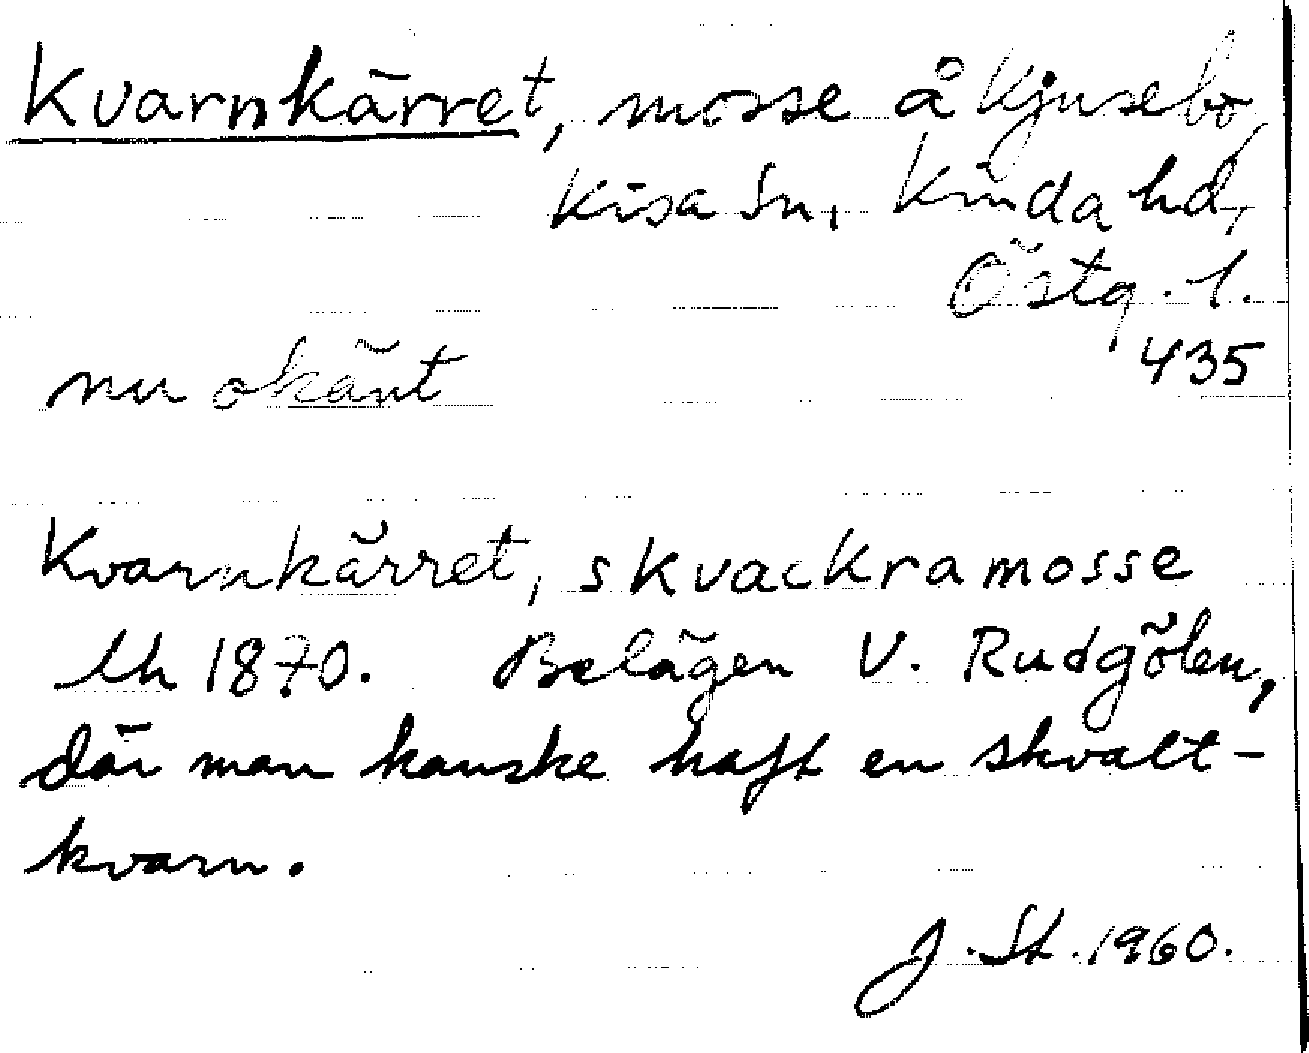 Kvarnkärret, mosse å Kjusebo,
Kisa Sn, Kinda hd,
Östg. l.
435
nu okänt
Kvarnkärret, skvackramosse
Lh 1870. Belägen V. Rudgölen,
där man kanske haft en skvalt-
kvarn.
J. St. 1960.